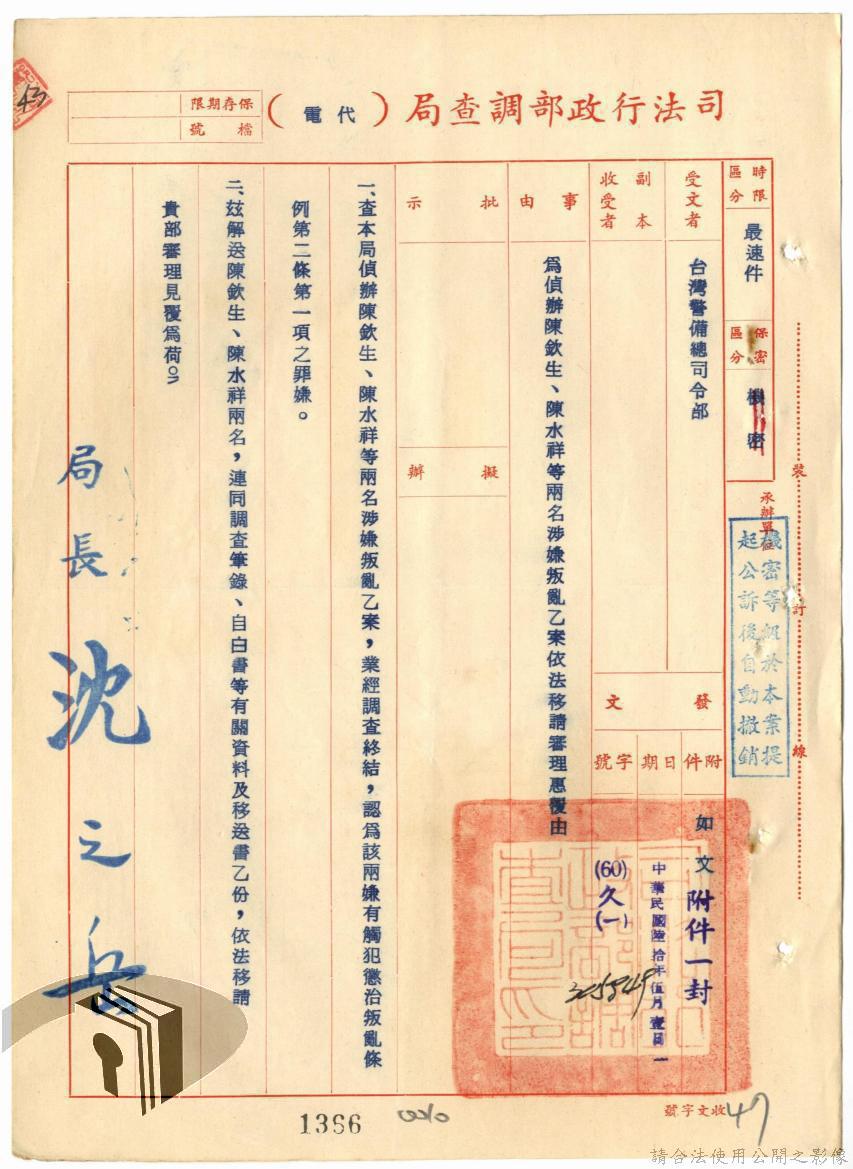 司法行政部調查局（代電）
保存期限
檔號
43
時限區分
最速件
保密區分
機密
受文者
台灣警備總司令部
副本收受者
發文
附件
如文
附件一封
日期
中華民國陸拾年伍月壹日
字號
(60)久(一)
事由
為偵辦陳欽生、陳水祥等兩名涉嫌叛亂乙案依法移請審理惠覆由
批示
擬辦
一、查本局偵辦陳欽生、陳水祥等兩名涉嫌叛亂乙案，業經調查終結，認為該兩嫌有觸犯懲治叛亂條
例第二條第一項之罪嫌。
二、茲解送陳欽生、陳水祥兩名，連同調查筆錄、自白書等有關資料及移送書乙份，依法移請
貴部審理見覆為荷。
局長 沈之岳
承辦單位
機密等級於本案提
起公訴後自動撤銷
裝訂線
收文字號
47
1366
請合法使用公開之影像